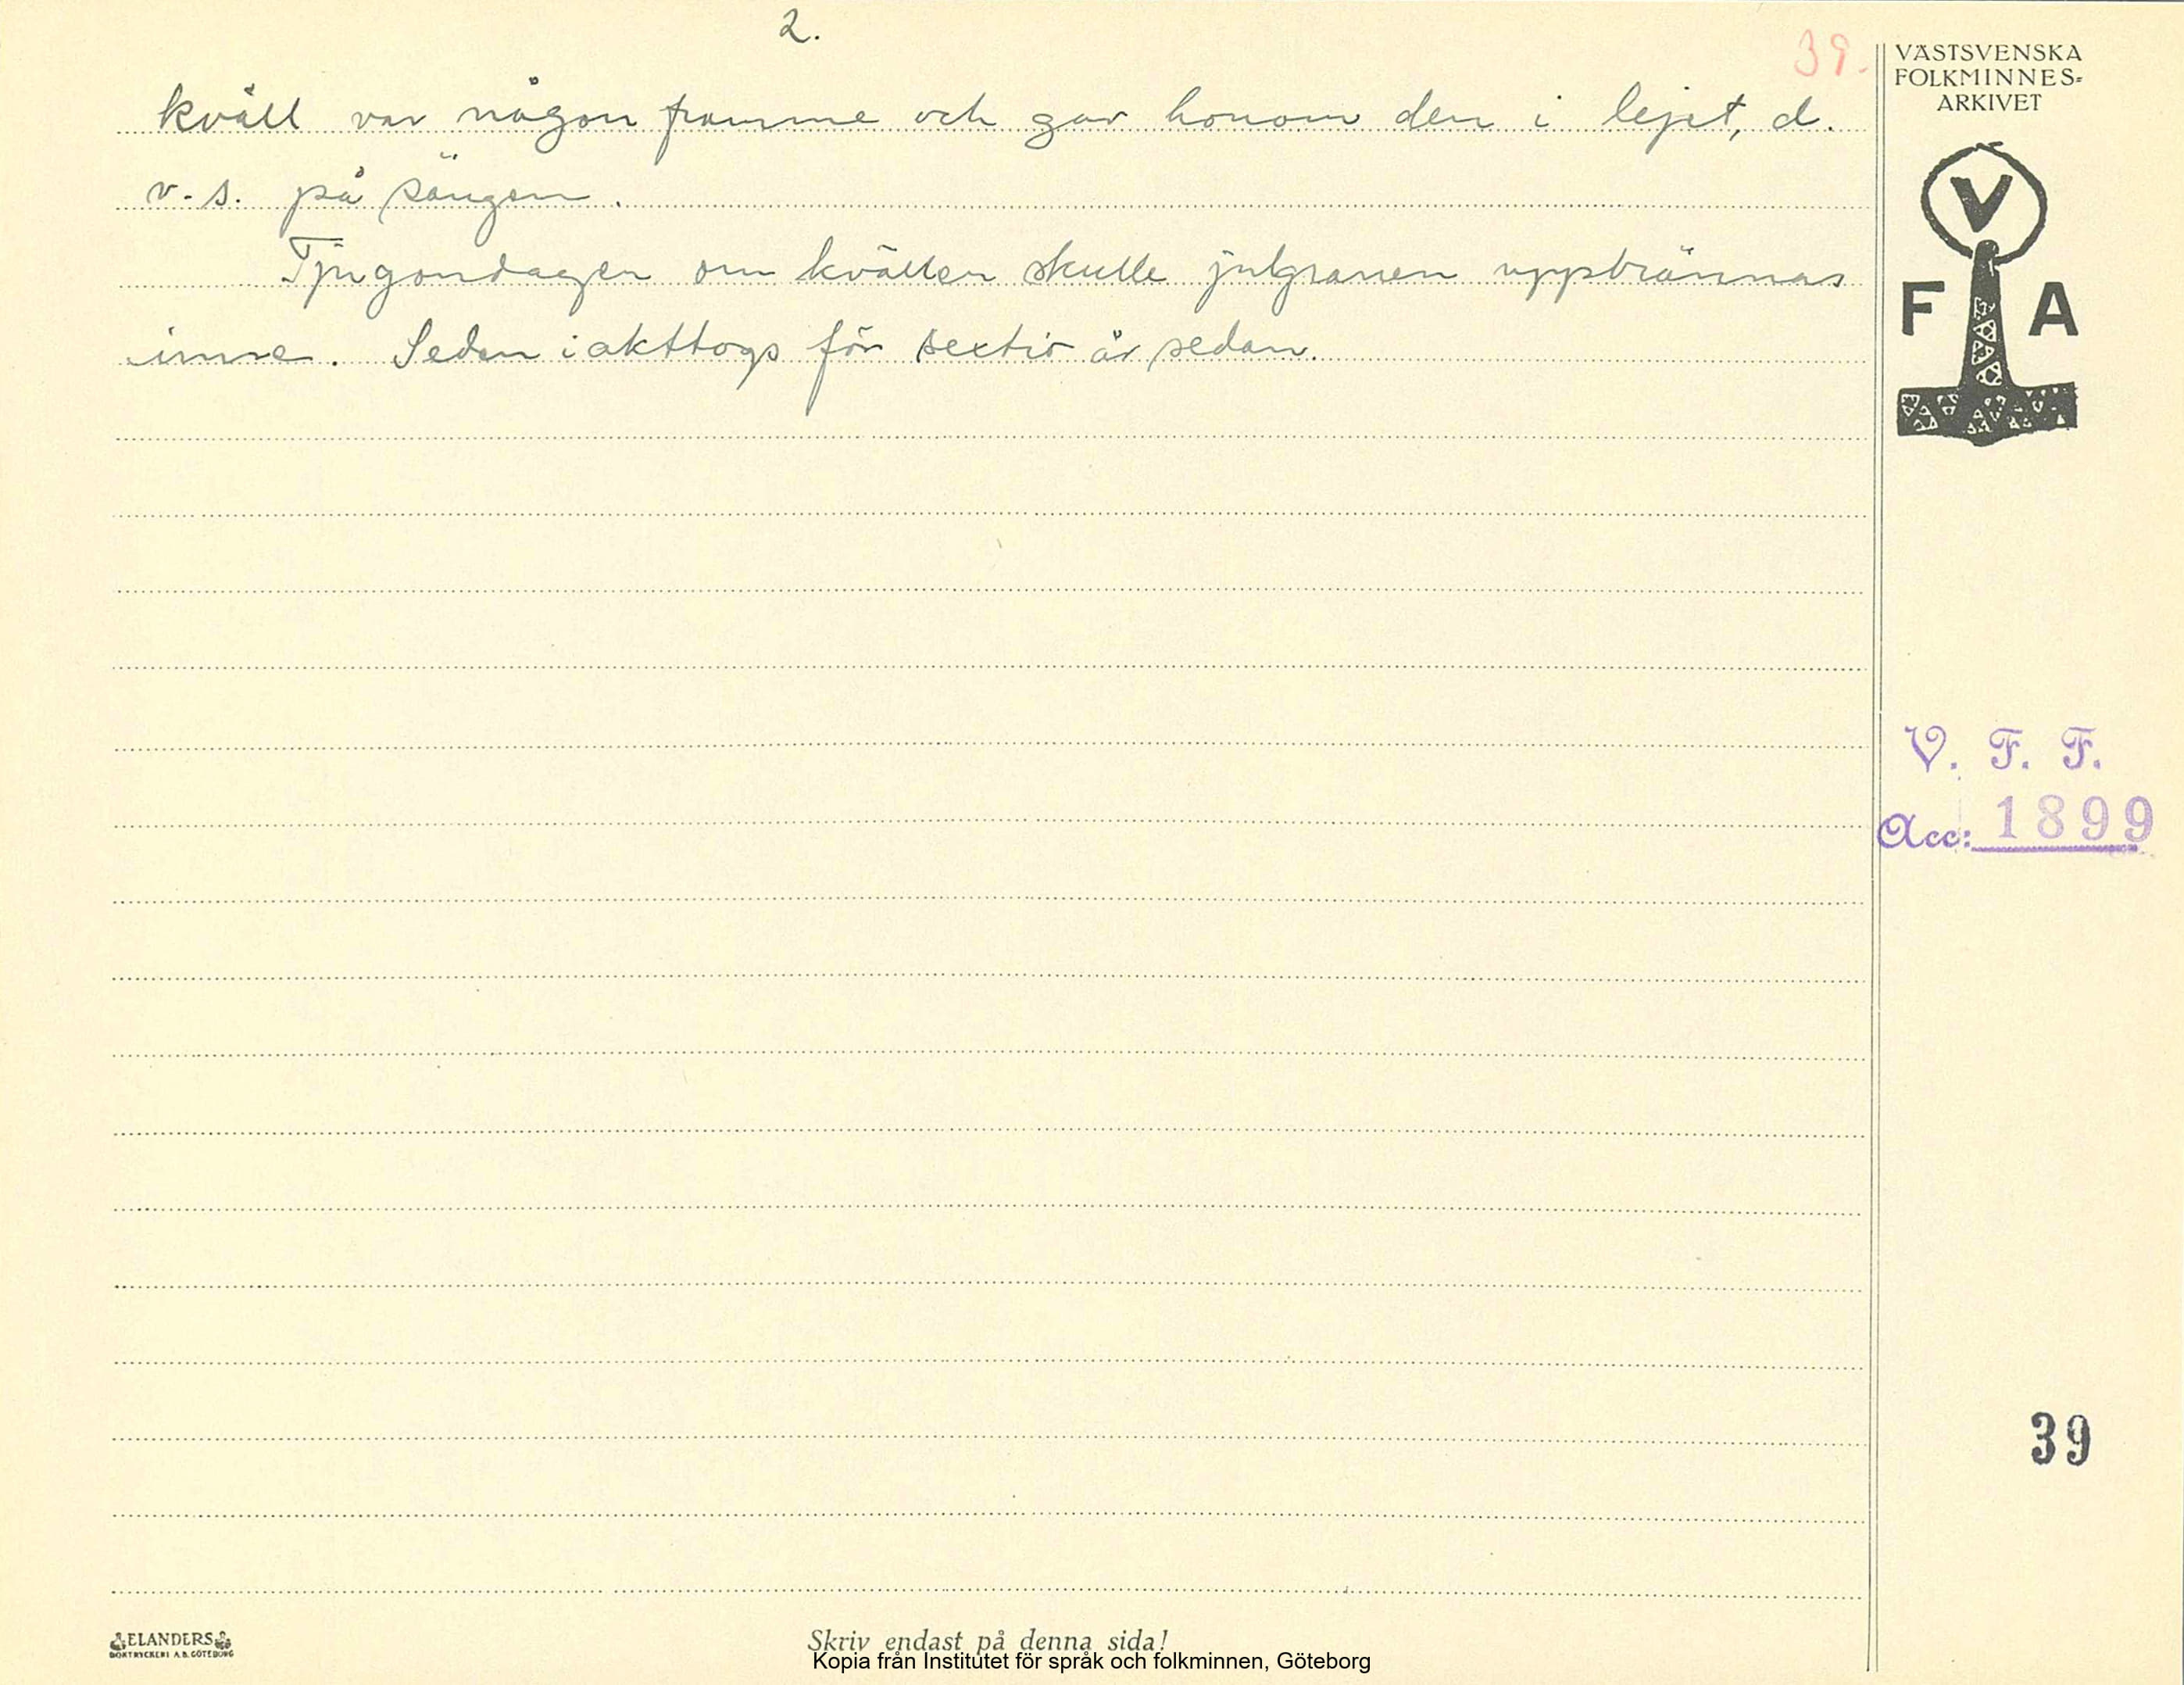 2.
39.
kväll var någon framme och gav honom den i lejet, d.
v.s. på sängen.
Tjugondagen om kvällen skulle julgranen uppbrännas
inne. Seden iakttogs för sextio år sedan.
VÄSTSVENSKA
FOLKMINNES=
ARKIVET
V
F A
V. F. F.
Acc: 1899
39
ELANDERS
BOKTRYCKERI A.B. GÖTEBORG
Skriv endast på denna sida!
Kopia från Institutet för språk och folkminnen, Göteborg